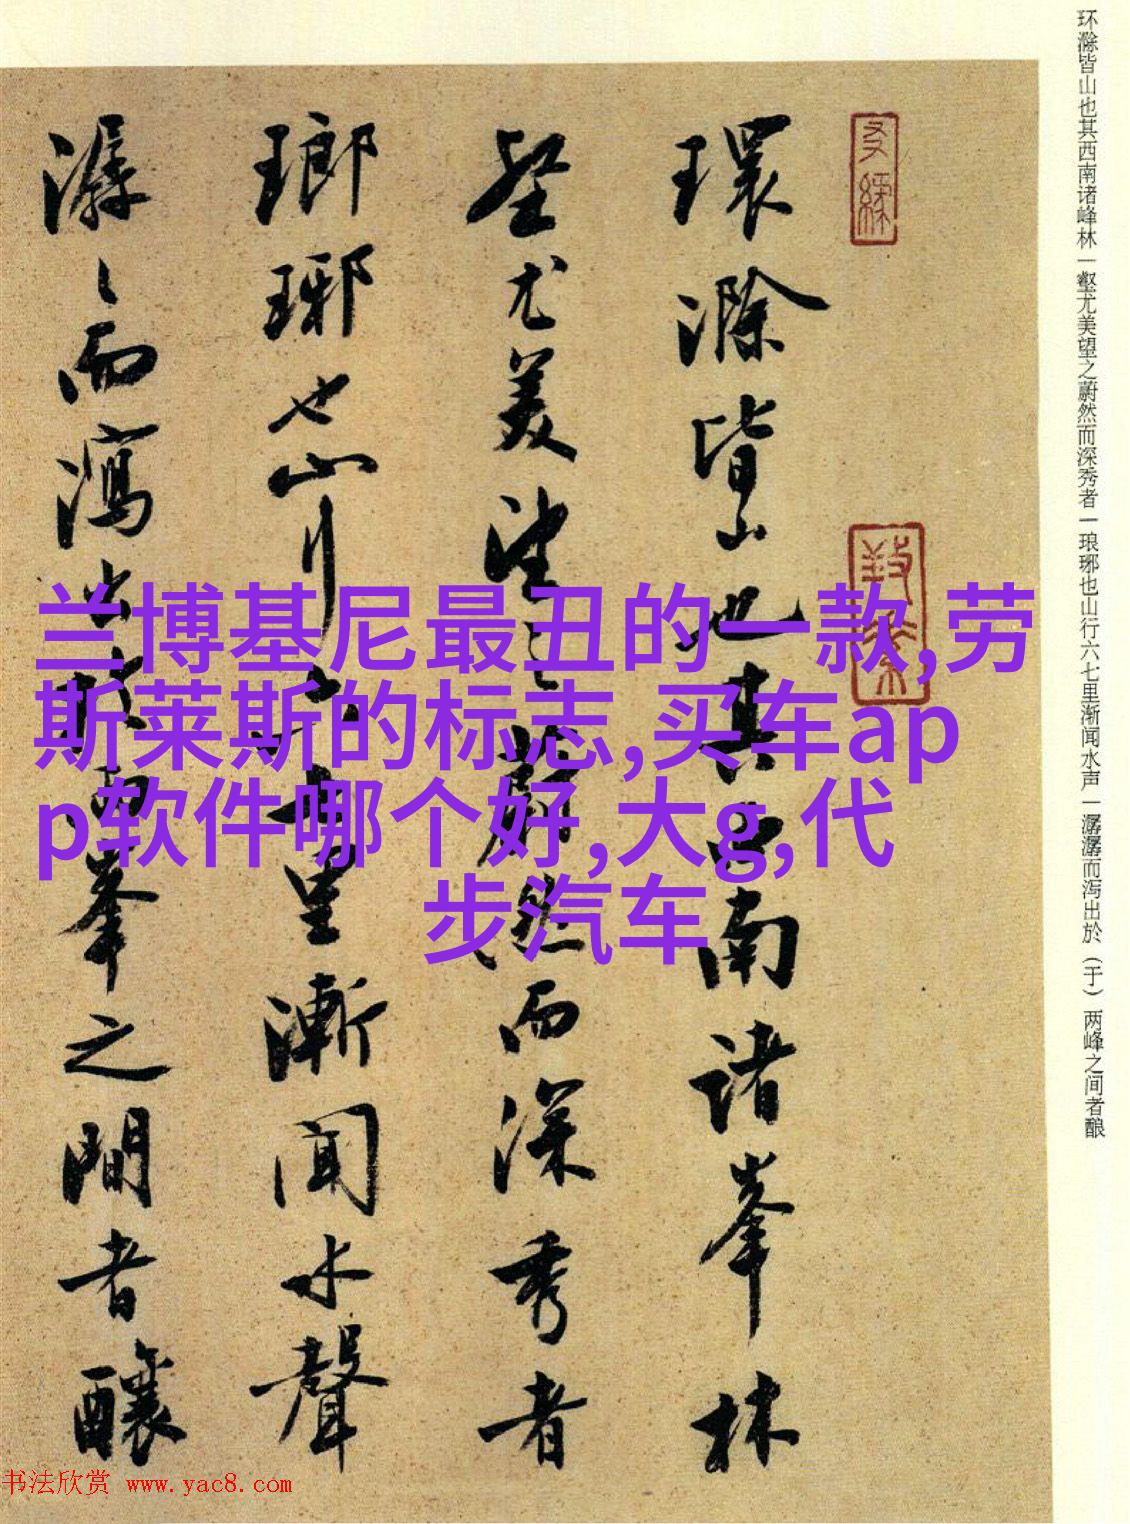 环滁皆山也其西南诸峰林一壑尤美望之蔚然而深秀者一琅琊也山行六七里渐闻水声一潺潺而泻出於（于）两峰之间者酿
環滁皆山也其西南諸峯林
壑尤美望之蔚然而深秀者
瑯琊也山行六七里漸聞水聲
潺〻而瀉出於兩峯之間者釀
兰博基尼最丑的一款,劳
斯莱斯的标志,买车ap
p软件哪个好,大g,代
步汽车
书法欣赏 www.yac8.com